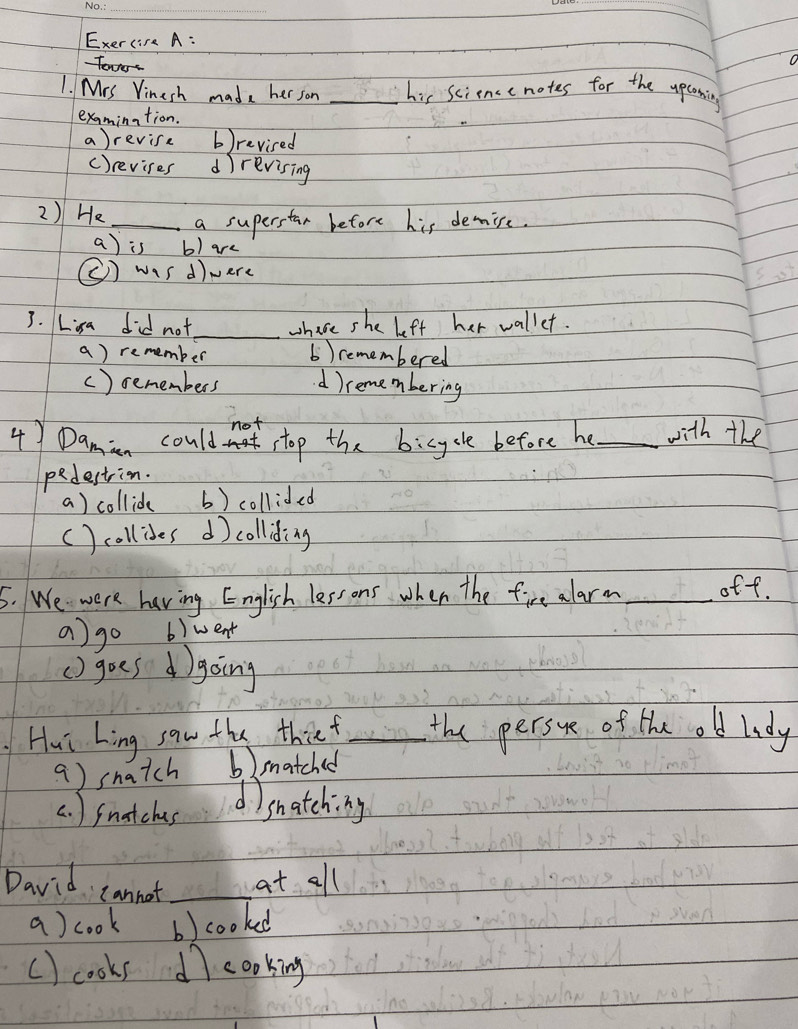 No.:
Date:
Exercise A:
1. Mrs Vinesh made her son ______ his science notes for the upcoming
examination.
a) revise b) revised
c) revises d) revising
2) He ______ a superstar before his demise.
a) is b) are
c) was d) were
3. Lisa did not ______ where she left her wallet.
a) remember b) remembered
c) remembers d) remembering
4) Damien could not stop the bicycle before he ______ with the
pedestrin.
a) collide b) collided
c) collides d) colliding
5. We were having English lessons when the fire alarm ______ off.
a) go b) went
c) goes d) going
. Hui Ling saw the thief ______ the persye of the old lady
a) snatch b) snatched
c.) snatches d.) snatching
David cannot ______ at all
a) cook b) cooked
c) cooks d) cooking